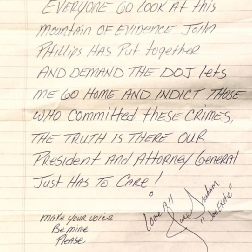 EVERYONE GO LOOK AT THIS
MOUNTAIN OF EVIDENCE JOHN
PHILLIPS HAS PUT TOGETHER
AND DEMAND THE DOJ LETS
ME GO HOME AND INDICT THOSE
WHO COMMITTED THESE CRIMES,
THE TRUTH IS THERE OUR
PRESIDENT AND ATTORNEY GENERAL
JUST HAS TO CARE!
"Love All
MAKE YOUR VOICE
BE MINE
PLEASE
"Joe Exotic"